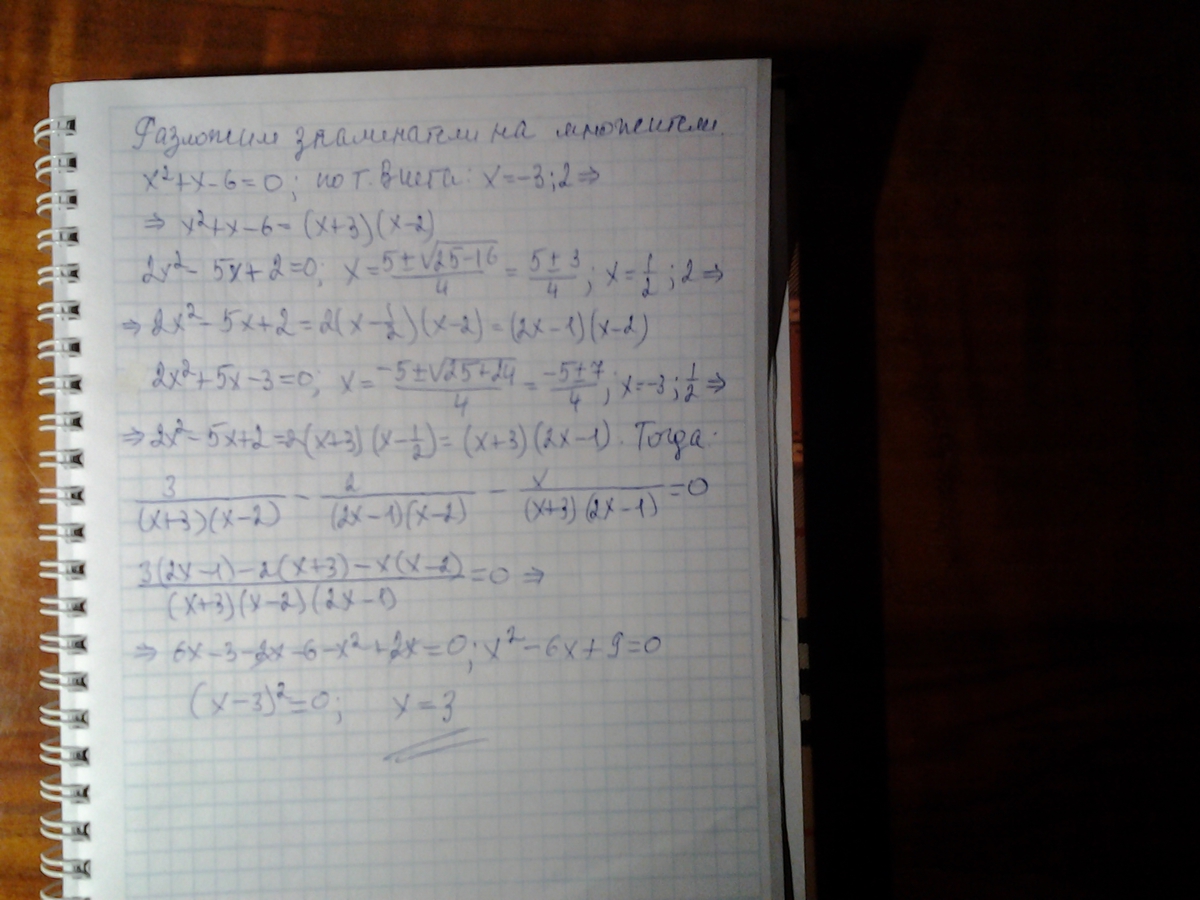 Разложим знаменатели на множители.
x²+x-6=0; по т. Виета: x=-3;2⇒
⇒ x²+x-6=(x+3)(x-2)
2x²-5x+2=0; x=(5±√(25-16))/4=(5±3)/4; x=1/2;2⇒
⇒2x²-5x+2=2(x-1/2)(x-2)=(2x-1)(x-2)
2x²+5x-3=0; x=(-5±√(25+24))/4=(-5±7)/4; x=-3;1/2⇒
⇒2x²-5x+2=2(x+3)(x-1/2)=(x+3)(2x-1). Тогда:
3/((x+3)(x-2)) - 2/((2x-1)(x-2)) - x/((x+3)(2x-1))=0
(3(2x-1)-2(x+3)-x(x-2))/((x+3)(x-2)(2x-1))=0 ⇒
⇒ 6x-3-2x-6-x²+2x=0; x²-6x+9=0
(x-3)²=0; x=3